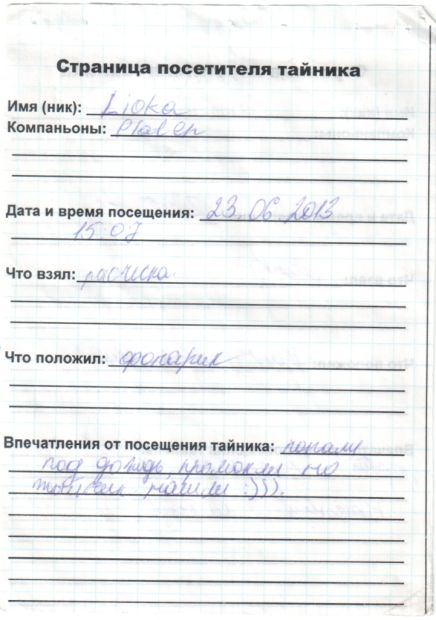 Страница посетителя тайника
Имя (ник): Lioka
Компаньоны:
Дата и время посещения: 23 06 2013
15 07
Что взял:
Что положил: фонарик
Впечатления от посещения тайника: попали
под дождь, промокли но
нашли :))).